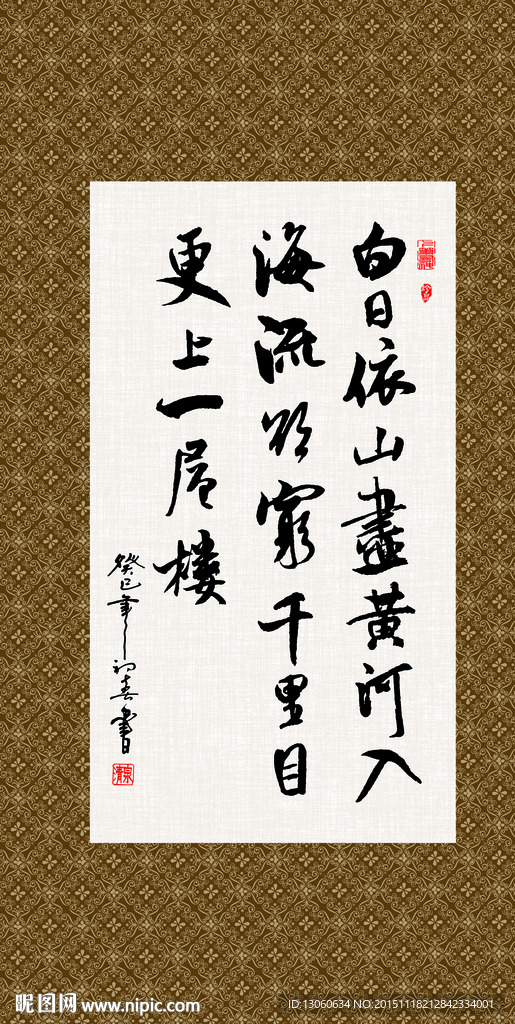 白日依山盡黃河入
海流欲窮千里目
更上一層樓
癸巳年初春書
昵图网 www.nipic.com
ID:13060634 NO:20151118212842334001